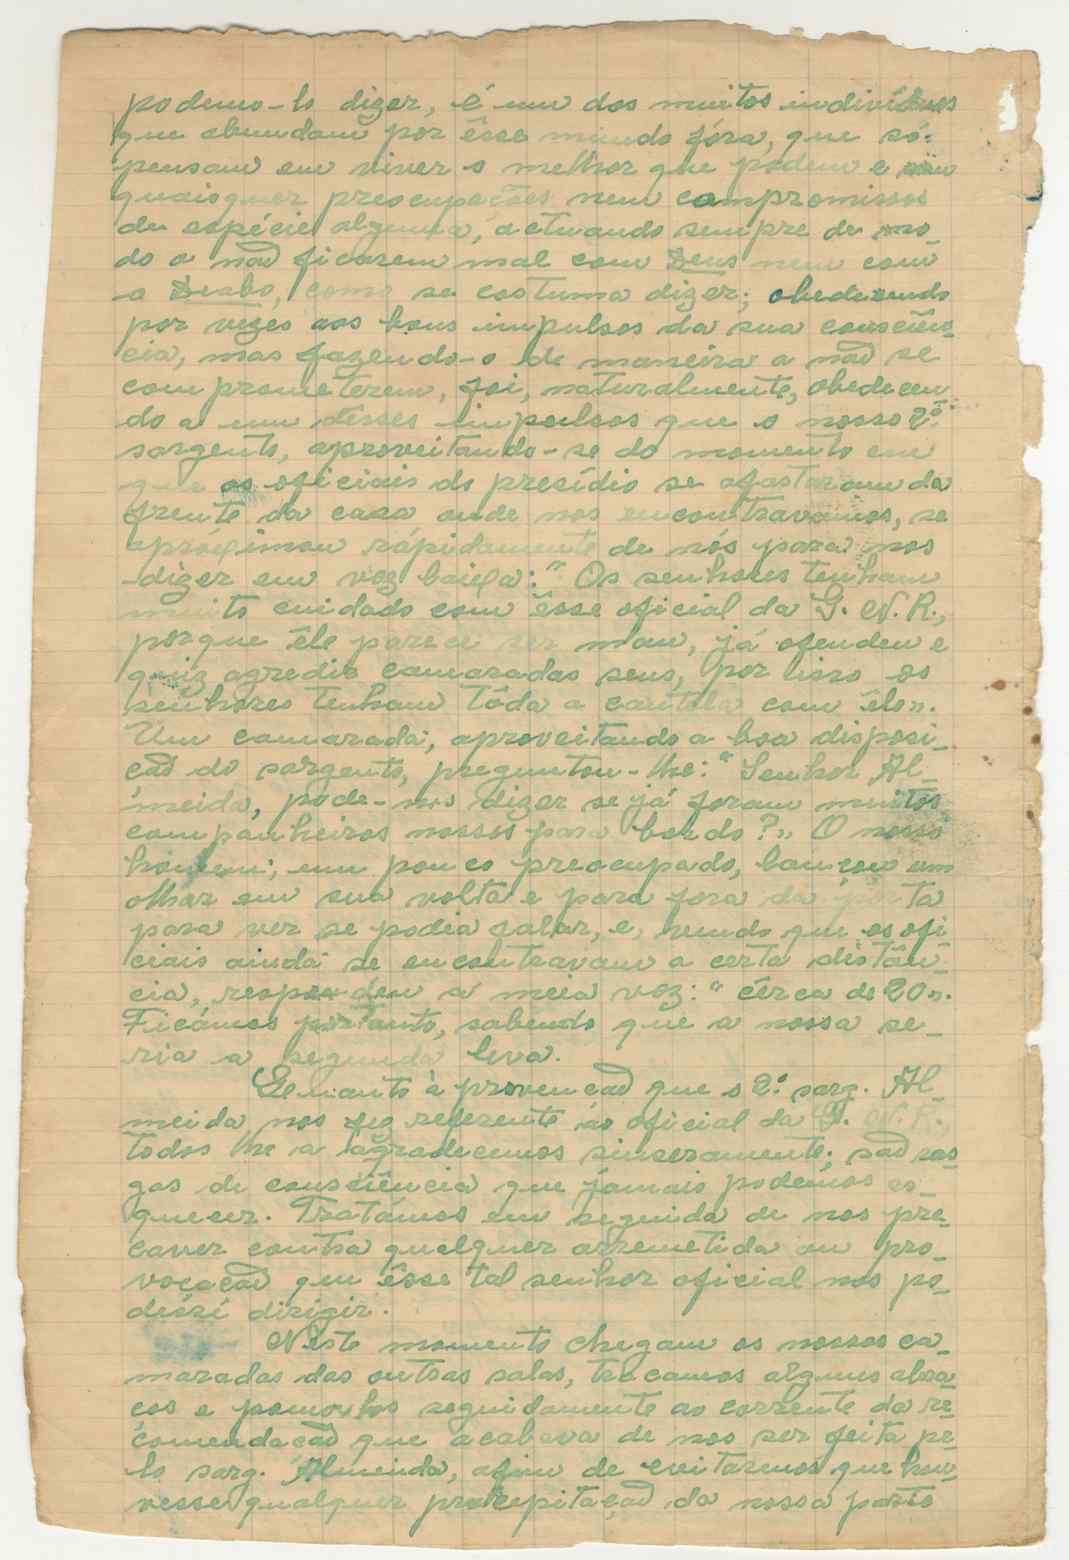 podemo-lo dizer, é um dos muitos indivíduos
que abundam por êsse mundo fóra, que só
pensam em viver o melhor que podem e sem
quaisquer preocupações nem compromissos
de espécie alguma, actuando sempre de mo-
do a não ficarem mal com Deus nem com
o Diabo, como se costuma dizer; obedecendo
por vezes aos bons impulsos da sua consciên-
cia, mas fazendo-o de maneira a não se
comprometerem, foi, naturalmente, obedecen-
do a um dêsses impulsos que o nosso 2º
sargento, aproveitando-se do momento em
que os oficiais do presídio se afastaram da
frente da casa onde nos encontravamos, se
apróximou rápidamente de nós para nos
dizer em voz baixa: "Os senhores tenham
muito cuidado com êsse oficial da G. N. R.,
porque êle parece ser mau, já ofendeu e
quiz agredir camaradas seus, por isso os
senhores tenham tôda a cautela com êle".
Um camarada, aproveitando a boa disposi-
ção do sargento, preguntou-lhe: "Senhor Al-
meida, pode-nos dizer se já foram muitos
companheiros nossos para bordo?" O nosso
homem, um pouco preocupado, lançou um
olhar em sua volta e para fora da porta
para ver se podia falar, e, vendo que os ofi-
ciais ainda se encontravam a certa distân-
cia, respondeu a meia voz: "cêrca de 20".
Ficámos portanto, sabendo que a nossa se-
ria a segunda leva.
Quanto à provenção que o 2º sarg. Al-
meida nos fez referente ao oficial da G. N. R.,
todos lhe a agradecemos sinceramente; são ras-
gos de consciência que jámais podemos es-
quecer. Tratámos em seguida de nos pre-
caver contra qualquer arremetida ou pro-
vocação que êsse tal senhor oficial nos po-
desse dirigir.
Neste momento chegam os nossos ca-
maradas das outras salas, trocamos alguns abra-
ços e pomo-los seguidamente ao corrente da re-
comendação que acabava de nos ser feita pe-
lo sarg. Almeida, afim de evitarmos que hou-
vesse qualquer precepitação da nossa parte